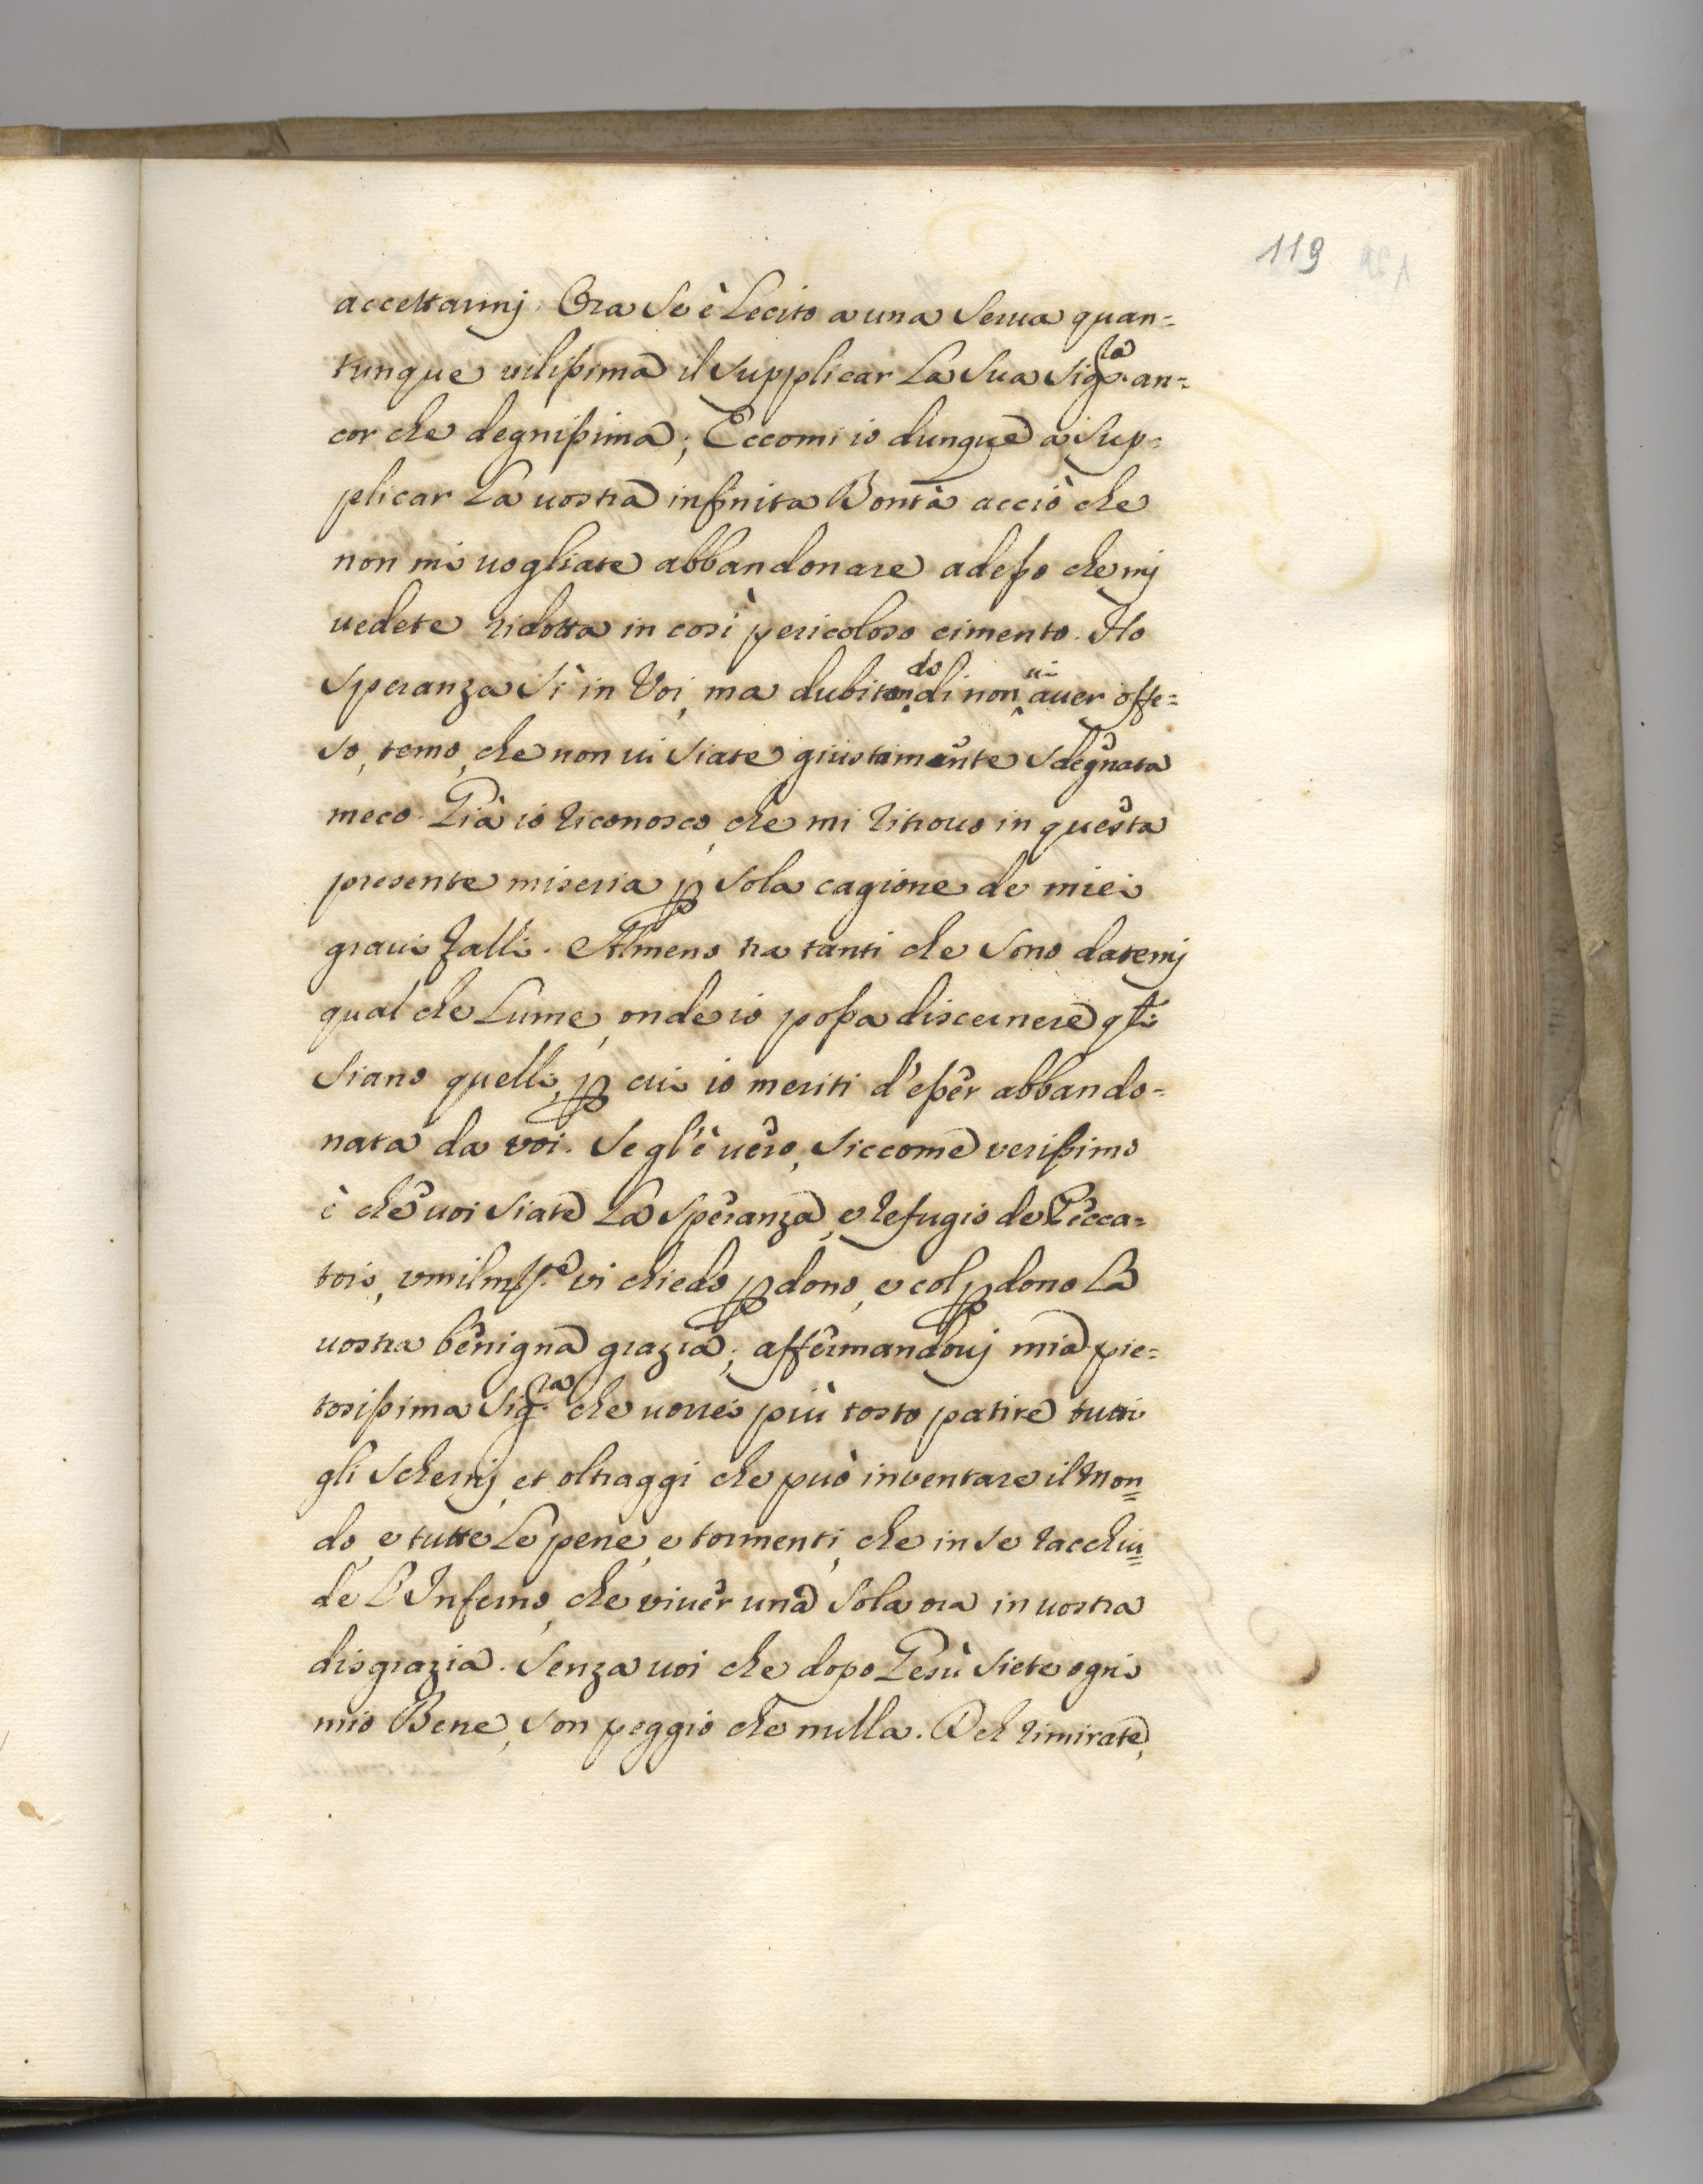 119
accettarmj. Ora se è lecito a una serua quan=
tunque vilissima il supplicar la sua Sig.ra an=
cor che degnissima; Eccomi io dunque a sup=
plicar la uostra infinita Bontà acciò che
non mi uogliate abbandonare adesso che mj
uedete ridotta in così pericoloso cimento. Ho
speranza sì in Voi, ma dubitando di non ui auer offe=
so, temo, che non ui siate giustamente sdegnata
meco. Già io riconosco, che mi ritrouo in questa
presente miseria p sola cagione de miei
graui falli. Almeno tra tanti che sono datemj
qual che lume, onde io possa discernere q.ti
siano quelli, p cui io meriti d'esser abbando=
nata da voi. Se gl'è uero, siccome verissimo
è che uoi siate la speranza, e refugio de Pecca=
tori, vmilm.te vi chiedo pdono, e col pdono la
uostra benigna grazia; affermandouj mia pie=
tosissima Sig.ra che uorrei più tosto patire tutti
gli schernj, et oltraggi che può inventare il Mon=
do, e tutte le pene, e tormenti, che in se racchiu=
de l'Inferno, che viuer una sola ora in uostra
disgrazia. Senza uoi che dopo Gesù siete ogni
mio Bene, son peggio che nulla. Deh rimirate,